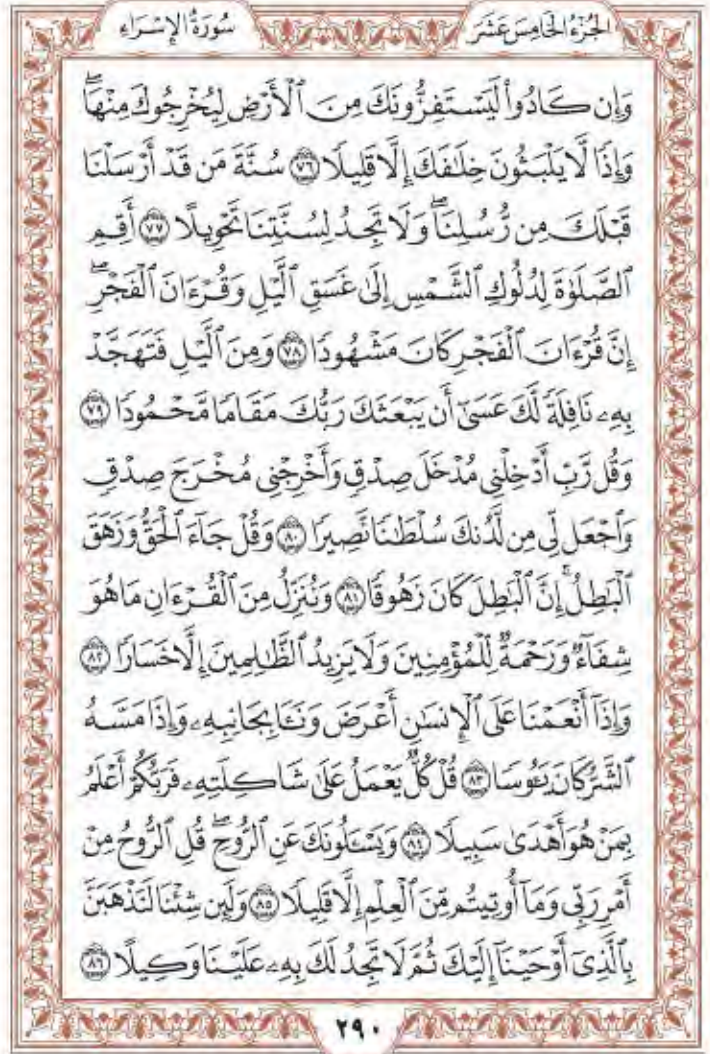 الجُزْءُ الخَامِسَ عَشَرَ سُورَةُ الإِسْرَاءِ
وَإِن كَادُواْ لَيَسْتَفِزُّونَكَ مِنَ ٱلْأَرْضِ لِيُخْرِجُوكَ مِنْهَاۖ
وَإِذًا لَّا يَلْبَثُونَ خِلَٰفَكَ إِلَّا قَلِيلًا ٧٦ سُنَّةَ مَن قَدْ أَرْسَلْنَا
قَبْلَكَ مِن رُّسُلِنَاۖ وَلَا تَجِدُ لِسُنَّتِنَا تَحْوِيلًا ٧٧ أَقِمِ
ٱلصَّلَوٰةَ لِدُلُوكِ ٱلشَّمْسِ إِلَىٰ غَسَقِ ٱلَّيْلِ وَقُرْءَانَ ٱلْفَجْرِۖ
إِنَّ قُرْءَانَ ٱلْفَجْرِ كَانَ مَشْهُودًا ٧٨ وَمِنَ ٱلَّيْلِ فَتَهَجَّدْ
بِهِۦ نَافِلَةً لَّكَ عَسَىٰٓ أَن يَبْعَثَكَ رَبُّكَ مَقَامًا مَّحْمُودًا ٧٩
وَقُل رَّبِّ أَدْخِلْنِي مُدْخَلَ صِدْقٍ وَأَخْرِجْنِي مُخْرَجَ صِدْقٍ
وَٱجْعَل لِّي مِن لَّدُنكَ سُلْطَٰنًا نَّصِيرًا ٨٠ وَقُلْ جَآءَ ٱلْحَقُّ وَزَهَقَ
ٱلْبَٰطِلُۚ إِنَّ ٱلْبَٰطِلَ كَانَ زَهُوقًا ٨١ وَنُنَزِّلُ مِنَ ٱلْقُرْءَانِ مَا هُوَ
شِفَآءٌ وَرَحْمَةٌ لِّلْمُؤْمِنِينَ وَلَا يَزِيدُ ٱلظَّٰلِمِينَ إِلَّا خَسَارًا ٨٢
وَإِذَآ أَنْعَمْنَا عَلَى ٱلْإِنسَٰنِ أَعْرَضَ وَنَـَٔا بِجَانِبِهِۦ وَإِذَا مَسَّهُ
ٱلشَّرُّ كَانَ يَـُٔوسًا ٨٣ قُلْ كُلٌّ يَعْمَلُ عَلَىٰ شَاكِلَتِهِۦ فَرَبُّكُمْ أَعْلَمُ
بِمَنْ هُوَ أَهْدَىٰ سَبِيلًا ٨٤ وَيَسْـَٔلُونَكَ عَنِ ٱلرُّوحِۖ قُلِ ٱلرُّوحُ مِنْ
أَمْرِ رَبِّي وَمَآ أُوتِيتُم مِّنَ ٱلْعِلْمِ إِلَّا قَلِيلًا ٨٥ وَلَئِن شِئْنَا لَنَذْهَبَنَّ
بِٱلَّذِيٓ أَوْحَيْنَآ إِلَيْكَ ثُمَّ لَا تَجِدُ لَكَ بِهِۦ عَلَيْنَا وَكِيلًا ٨٦
٢٩٠